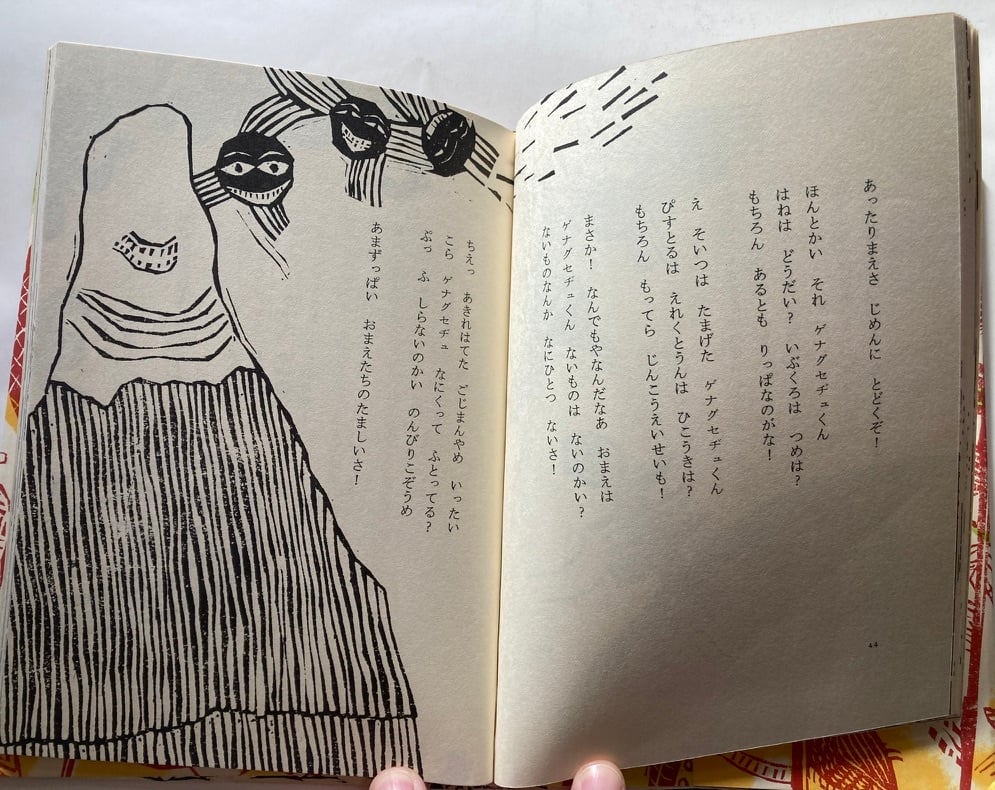 あったりまえさ　じめんに　とどくぞ！
ほんとかい　それ　ゲナグセヂュくん
はねは　どうだい？　いぶくろは　つめは？
もちろん　あるとも　りっぱなのがな！
え　そいつは　たまげた　ゲナグセヂュくん
ぴすとるは　えれくとうんは　ひこうきは？
もちろん　もってら　じんこうえいせいも！
まさか！　なんでもやなんだなあ　おまえは
ゲナグセヂュくん　ないものは　ないのかい？
ないものなんか　なにひとつ　ないさ！
ちえっ　あきれはてた　ごじまんやめ　いったい
こら　ゲナグセヂュ　なにくって　ふとってる？
ぷっ　ふ　しらないのかい　のんびりこぞうめ
あまずっぱい　おまえたちのたましいさ！
44